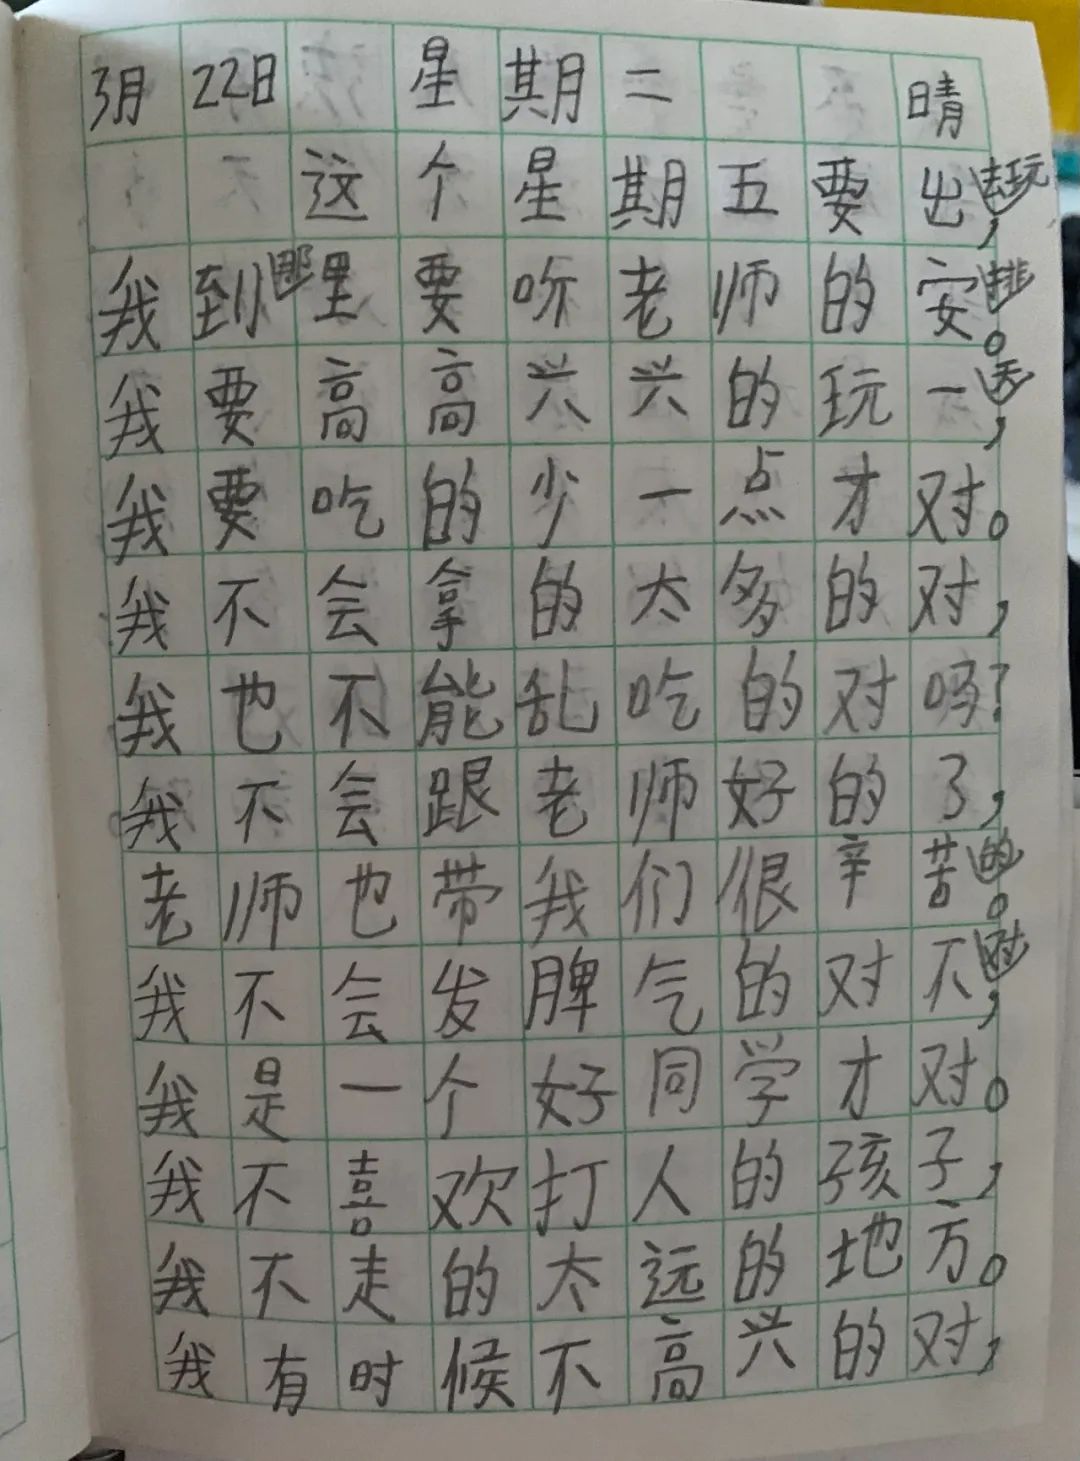 3月 22日 星期二 晴
这个星期五要出去玩,
我到哪里要听老师的安排。
我要高高兴兴的玩一送,
我要吃的少一点才对。
我不会拿的太多的对,
我也不能乱吃的对吗?
我不会跟老师好的了,
老师也带我们很辛苦的。
我不会发脾气的对不对,
我是一个好同学才对。
我不喜欢打人的孩子,
我不走的太远的地方。
我有时候不高兴的对,